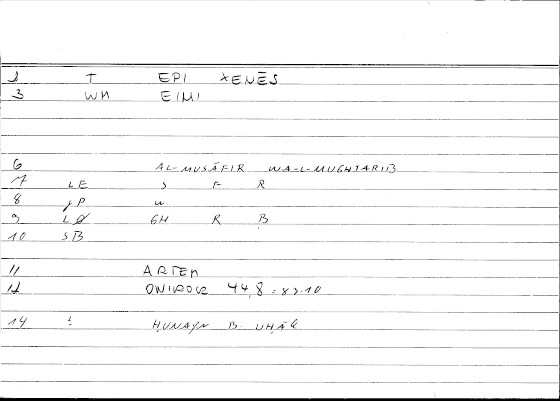 2 T EPI XENĒS
3 WH EIMI
6 AL-MUSĀFIR WA-L-MUGHTARIB
7 LE S F R
8 JP W
9 LØ GH R B
10 SB
11 ARTEM
12 ONIROCR 44,8 = 83.10
14 HUNAYN B. ISHĀQ